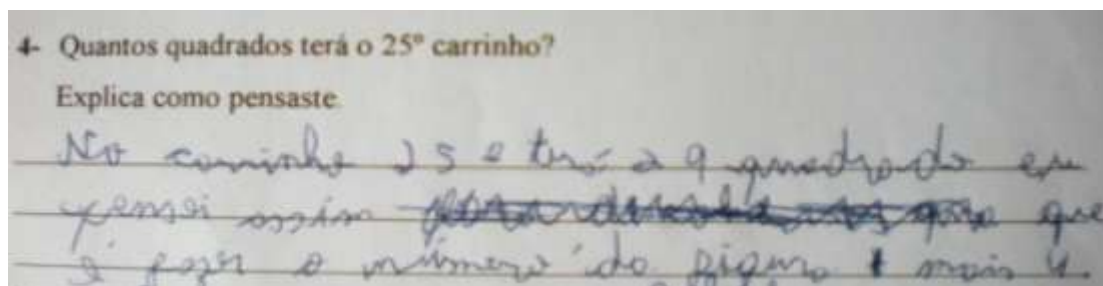 4- Quantos quadrados terá o 25º carrinho?
Explica como pensaste.
No carrinho 25 e terá 29 quadrado eu
pensei assim que
é fazer o número do figura + mais 4.